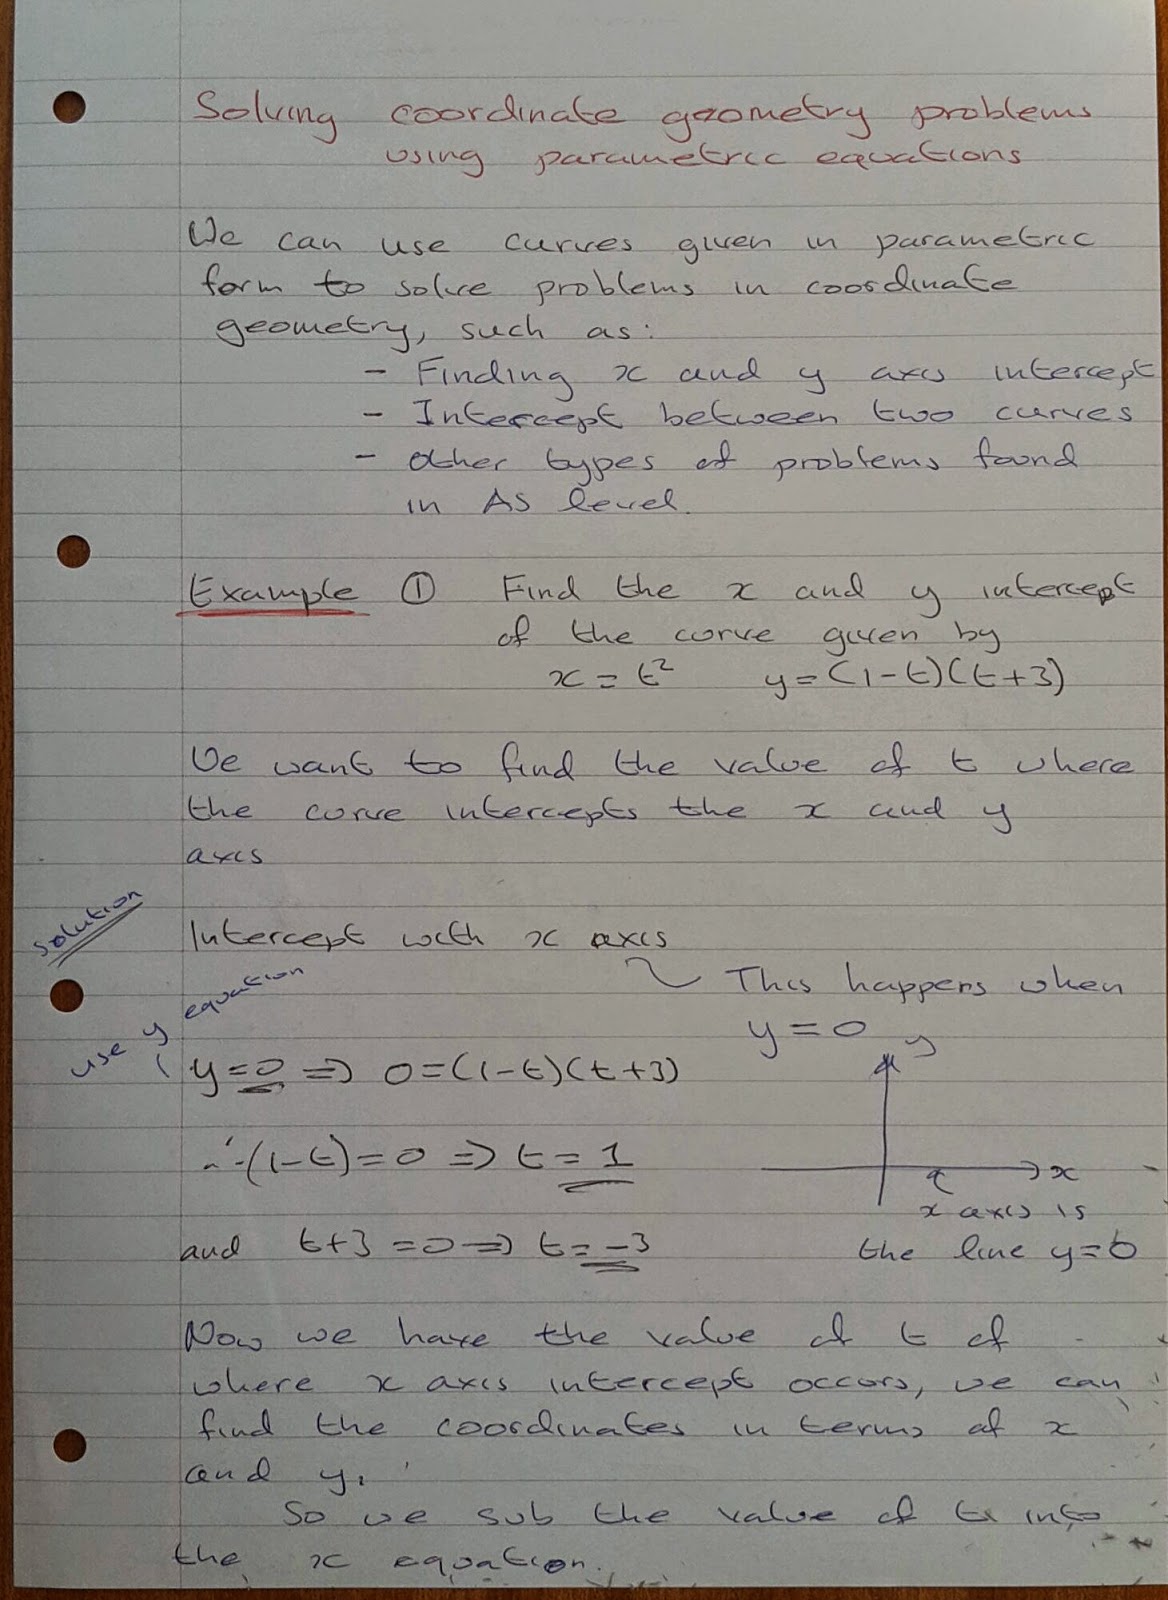 Solving coordinate geometry problems
using parametric equations
We can use curves given in parametric
form to solve problems in coordinate
geometry, such as:
- Finding x and y axis intercept
- Intercept between two curves
- Other types of problems found
in AS level.
Example ① Find the x and y intercept
of the curve given by
x = t² y = (1-t)(t+3)
We want to find the value of t where
the curve intercepts the x and y
axis
Solution
Intercept with x axis
This happens when
y = 0
use y equation
y = 0 ⇒ 0 = (1-t)(t+3)
y
∴ (1-t) = 0 ⇒ t = 1
x
x axis is
the line y = 0
and t+3 = 0 ⇒ t = -3
Now we have the value of t of
where x axis intercept occurs, we can
find the coordinates in terms of x
and y.
So we sub the value of t into
the x equation.